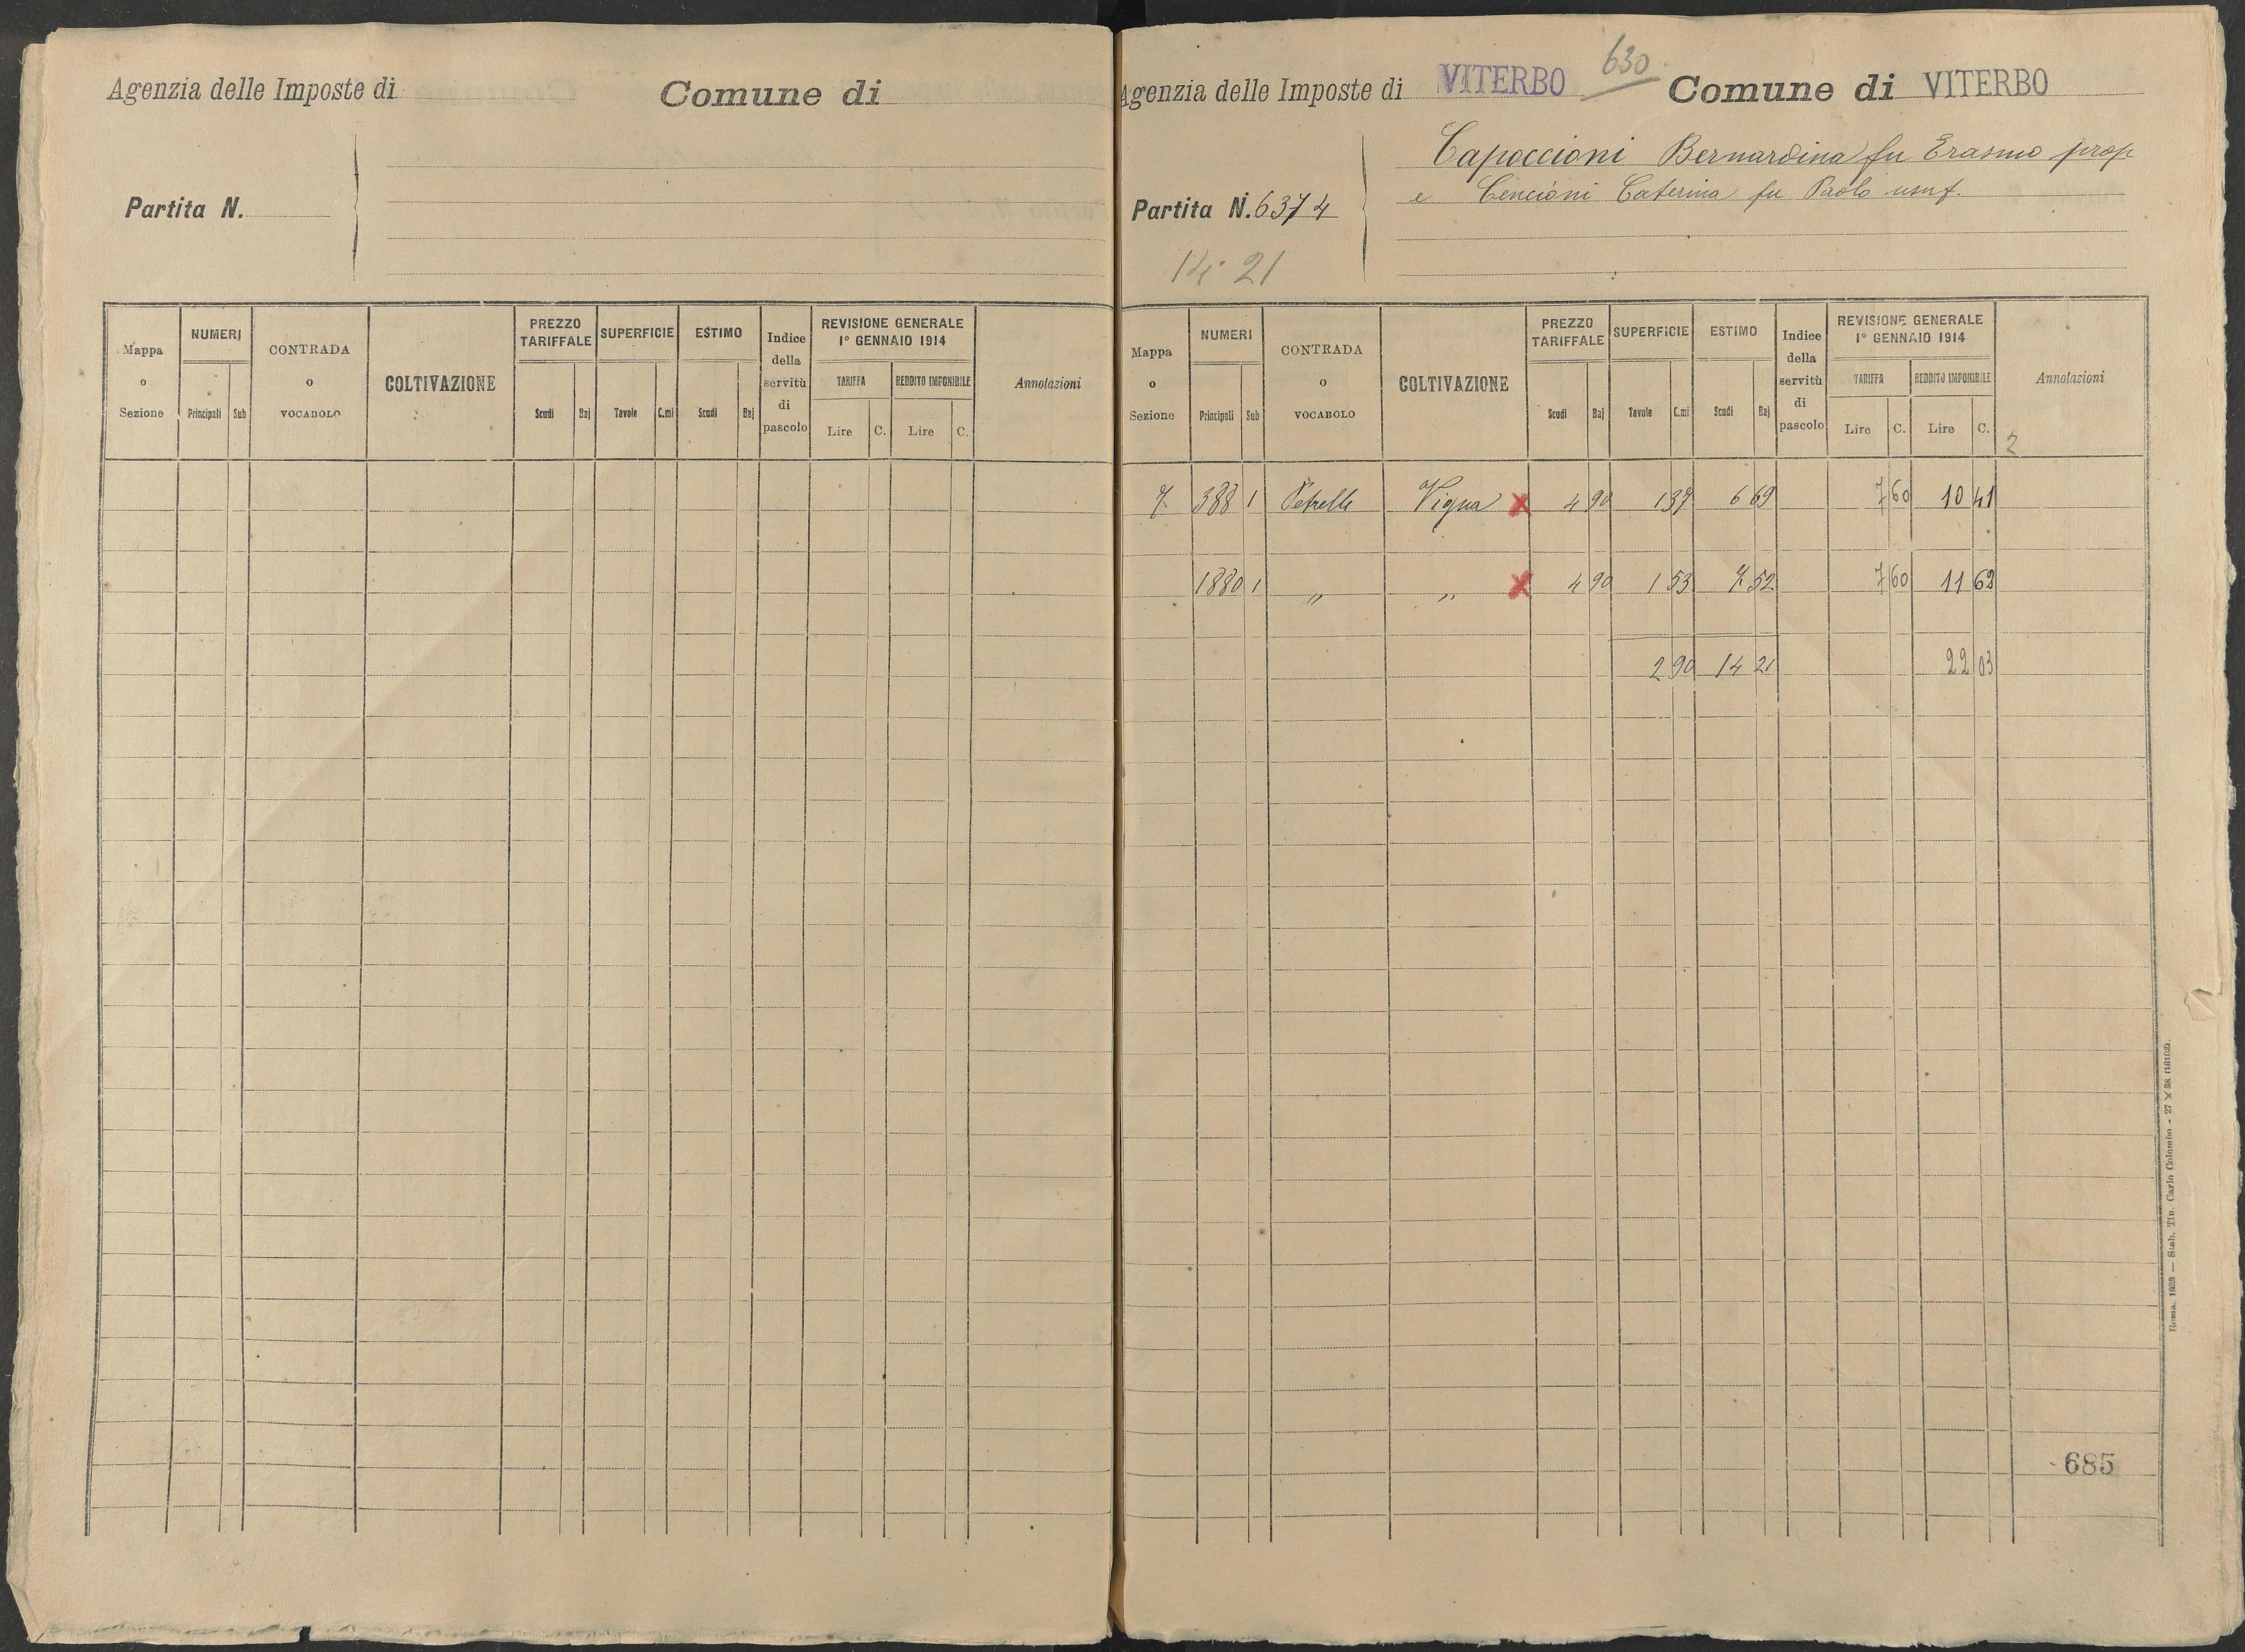 Agenzia delle Imposte di
Comune di
Partita N.
Mappa o Sezione
NUMERI
Principali Sub
CONTRADA o VOCABOLO
COLTIVAZIONE
PREZZO TARIFFALE
Scudi Baj
SUPERFICIE
Tavole C.mi
ESTIMO
Scudi Baj
Indice della servitù di pascolo
REVISIONE GENERALE
1° GENNAIO 1914
TARIFFA
Lire C.
REDDITO IMPONIBILE
Lire C.
Annotazioni
630
Agenzia delle Imposte di VITERBO Comune di VITERBO
Capoccioni Bernardina fu Erasmo prop
e Cencioni Caterina fu Paolo usuf.
Partita N. 6374
14 21
Mappa o Sezione
NUMERI
Principali Sub
CONTRADA o VOCABOLO
COLTIVAZIONE
PREZZO TARIFFALE
Scudi Baj
SUPERFICIE
Tavole C.mi
ESTIMO
Scudi Baj
Indice della servitù di pascolo
REVISIONE GENERALE
1° GENNAIO 1914
TARIFFA
Lire C.
REDDITO IMPONIBILE
Lire C.
Annotazioni
2
7 388 1 Petrelle Vigna x 4 90 1 37 6 69 7 60 10 41
1880 1 " " x 4 90 1 53 7 52 7 60 11 62
2 90 14 21 22 03
685
Roma, 1923 — Stab. Tip. Carlo Colombo - 27 X 38